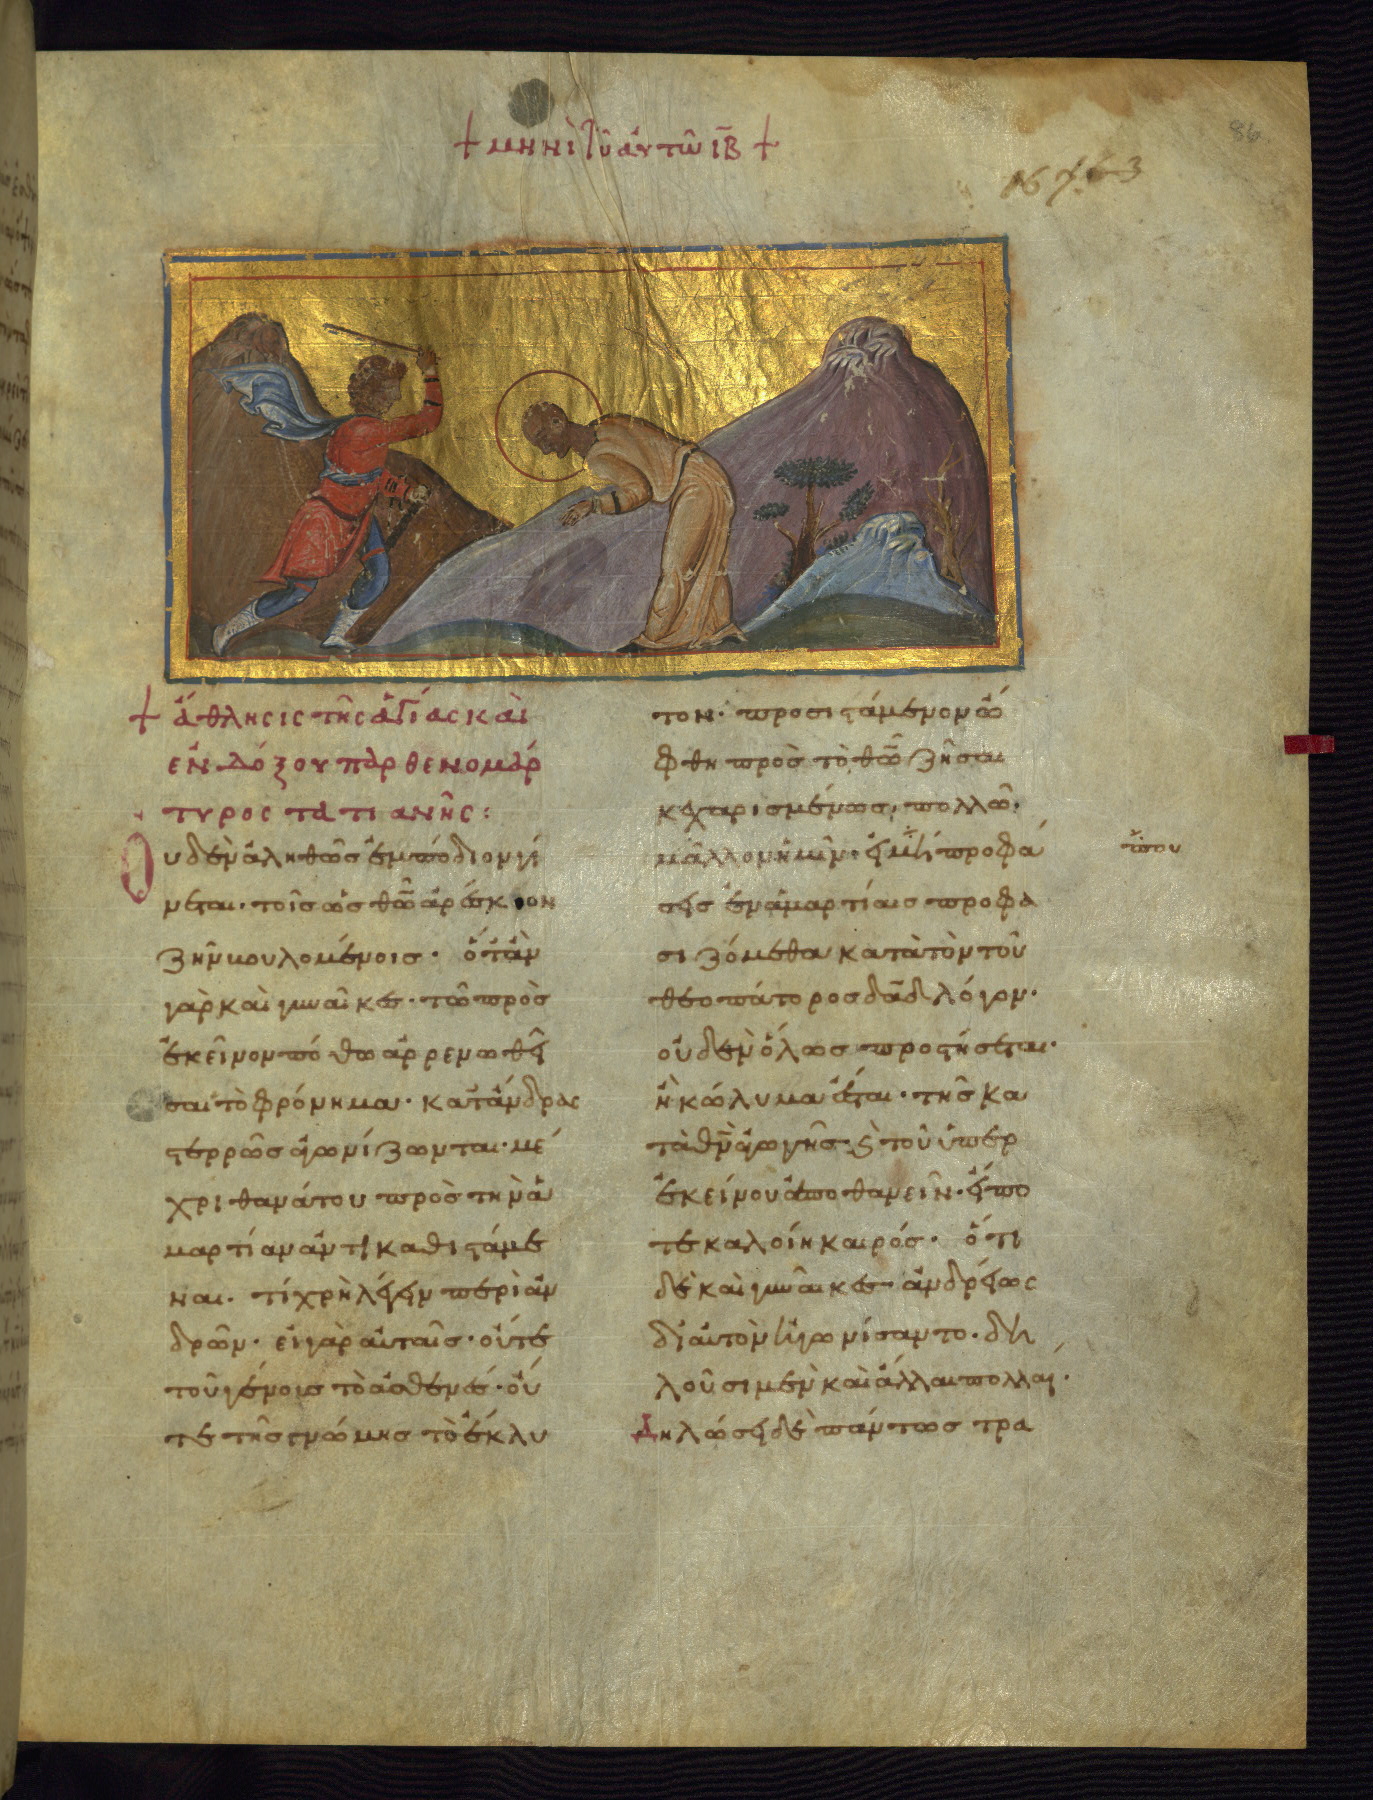 + μηνὶ τῶ αὐτῶ ιβ +
86
+ ἄθλησις τῆς ἁγίας καὶ
ἐνδόξου παρθενομάρ
τυρος τατιανῆς:
Οὐδὲν ἀληθῶς ἐμπόδιον γί
νεται· τοῖς ὡς θῶ ἀρέσκον
ζῆν βουλομένοις· ὅταν
γὰρ καὶ γυναῖκες· τῶ πρὸς
ἐκεῖνον πόθω ἀρρενωθεῖ
σαι τὸ φρόνημα· κατὰ ἄνδρας
στερρῶς ἀγωνίζωνται· μέ
χρι θανάτου πρὸς τὴν ἁ
μαρτίαν ἀντικαθιστάμε
ναι· τί χρὴ λέγειν περὶ ἀν
δρῶν· εἰ γὰρ αὐταῖς· οὔτε
τοῦ γένους τὸ ἀσθενὲς· οὔ
τε τῆς γνώμης τὸ ἔκλυ
τον· προσιστάμενον ὤ
φθη πρὸς τὸ θῶ ζῆσαι
κεχαρισμένως, πολλῶ
μᾶλλον ἡμῖν· εἰ μὴ προφά
σεις ἐν ἁμαρτίαις προφα
σιζόμεθα κατὰ τὸν τοῦ
θεοπάτορος δαδ λόγον·
οὐδὲν ὅλως προστήσεται·
ἢ κώλυμα ἔσται· τῆς κα
τὰ θν ἀγωγῆς· ϗ τοῦ ὑπὲρ
ἐκείνου ἀποθανεῖν· εἴ πο
τε καλοίη καιρός· ὅτι
δὲ καὶ γυναῖκες ἀνδρείως
δι' αὐτὸν ἠγωνίσαντο· δη
λοῦσι μὲν καὶ ἄλλαι πολλαί·
Δηλώσει δὲ πάντως τρα